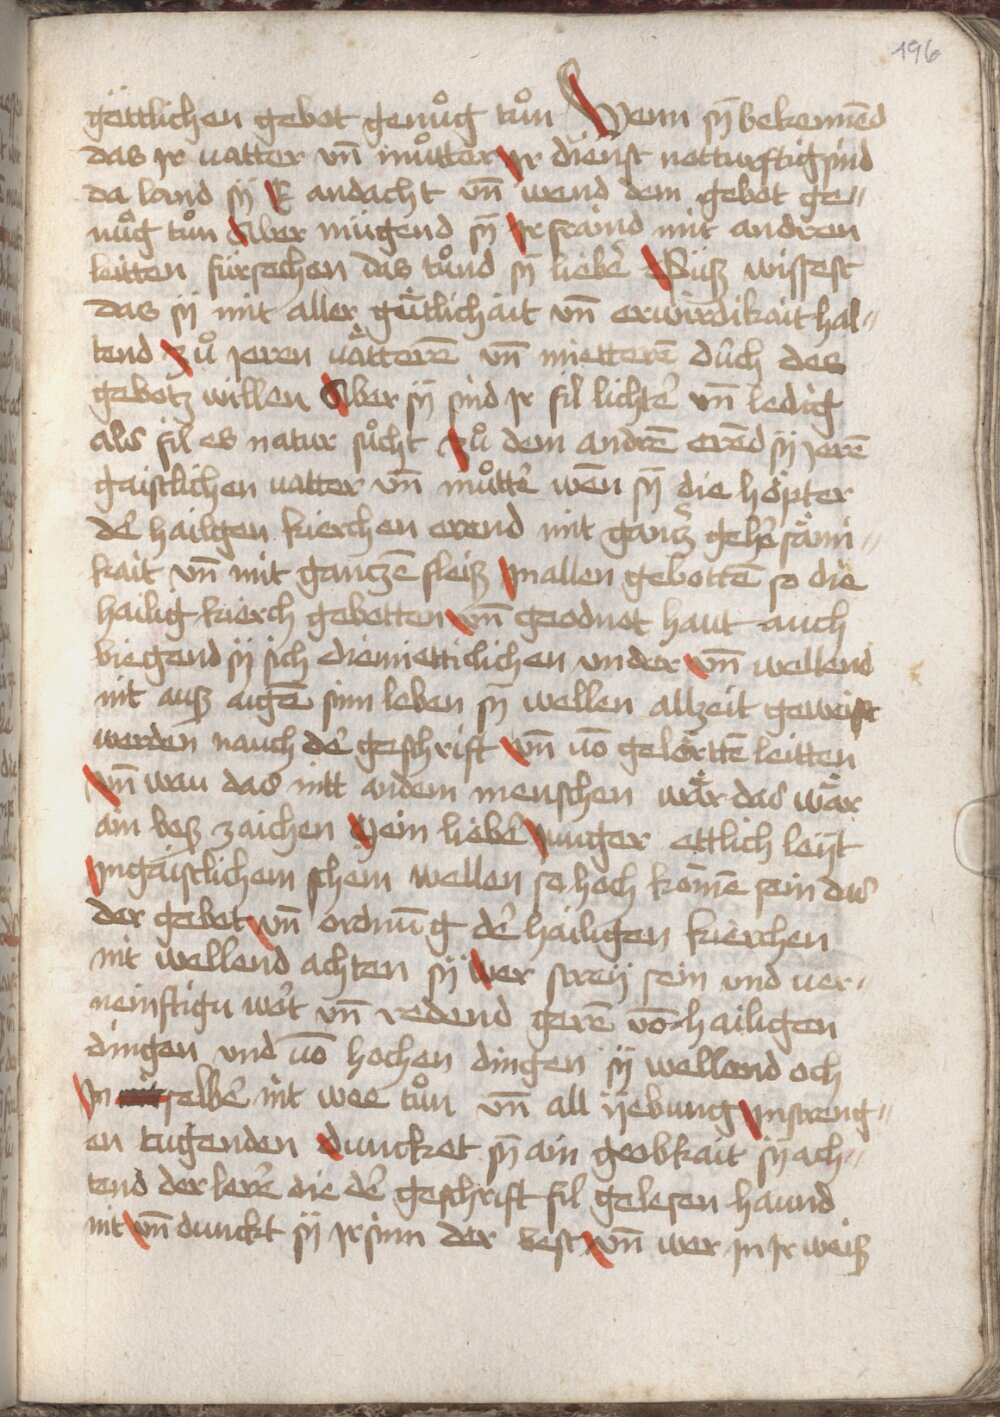 196
göttlichen gebot genuͦg tuͦn Wenn sȳ bekennēd
das ir uatter vn̄ muͦtter ir dienst notturftig sind
da land sÿ ir andacht vn̄ wend dem gebot ge〃
nuͦg tuͦn Aber mügend sȳ ir fraind mit andren
leitten fürsechen das tuͦnd sȳ lieber wissest
das sÿ mit aller guͤtlichait vn̄ erwirdikait hal〃
tend zuͦ ieren uätterē vn̄ mietterē durch des
gebotz willen Aber sȳ sind ir fil lichter vn̄ ledig
als fil es natur suͦcht zuͦ dem andrē erēd sÿ ierē
gaistlichen uatter vn̄ muͦtter wēn sȳ die höpter
der hailgen kierchen erend mit gantzer gehorsami〃
kait vn̄ mit gantzē fleiß in allen gebottē so die
hailig kierch gebotten vn̄ geodnot haut auch
biegend sÿ sich diemietticlichen under vn̄ wellend
nit auß aigē sinn leben sȳ wellen allzeit geweist
werden nauch der geschrift vn̄ uō gelörttē leitten
vn̄ wau das nitt andem menschen wär das wär
ain beß zaichen Mein lieber iunger ettlich leÿt
in gaistlichem schein wellen so hoch komē sein das
der gebot vn̄ ordnūg der hailigen kierchen
nit wellend achten sÿ wer freÿ sein und uer〃
neinftigu wort vn̄ redend gerē uō hailigen
dingen und uō hochen dingen sÿ wellend och
in selber nit wee tuͦn vn̄ all yebung in streng〃
en tugenden dunckot sȳ ain grobkait sÿ ach〃
tend der lerer die der geschrift fil gelesen haund
nit vn̄ dunckt sÿ ir sinn der best vn̄ wer in ir weiß